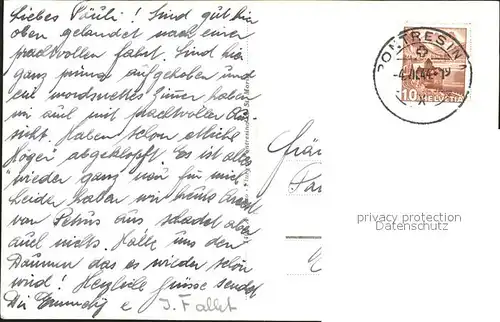 Liebes Päuli! Sind gut hier
oben gelandet nach einer
prachtvollen Fahrt. Sind hier
ganz prima aufgehoben und
ein wordsnettes Zimmer haben
wir auch mit prachtvoller Aus-
sicht. Haben schon etliche
Höger abgeklopft. Es ist alles
wieder ganz neu für mich
Leider haben wir heute Krach
von Petrus aus schadet aber
auch nichts. Halte uns den
Daumen das es wieder schön
wird! Herzliche Grüsse sendet
Dir e. J. Fallet
PONTRESINA
10 HELVETIA
privacy protection
Datenschutz